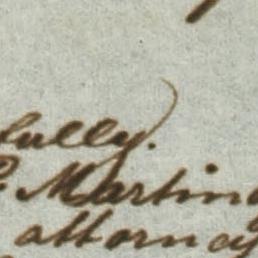 fully.
Martin
attorney